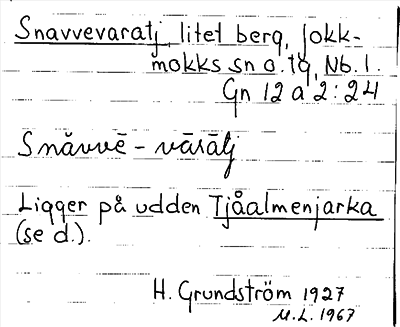 Snavvevaratj, litet berg, Jokk-
mokks sn o. tg, Nb. l.
Gn 12 a 2:24
Snăvvē - vārātj
Ligger på udden Tjåalmenjarka
(se d.).
H. Grundström 1927
M.L. 1967